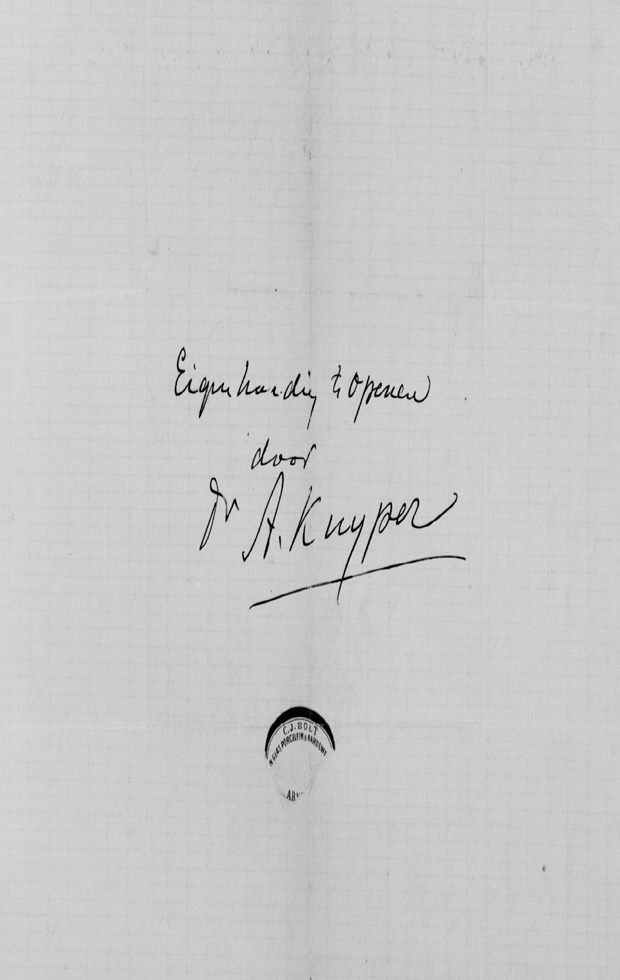 Eigenhandig te openen
door
Dr A. Kuyper
C.J. BOLT
GLAS PORCELEIN & AARDEWK